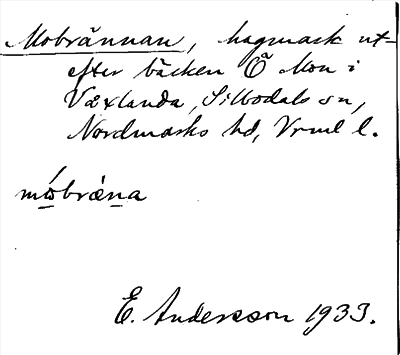 Mobrännan, hagmark ut-
efter bäcken Ö Mon i
Växlanda, Silbodals sn,
Nordmarks hd, Vrml l.
móbràna
E. Andersson 1933.